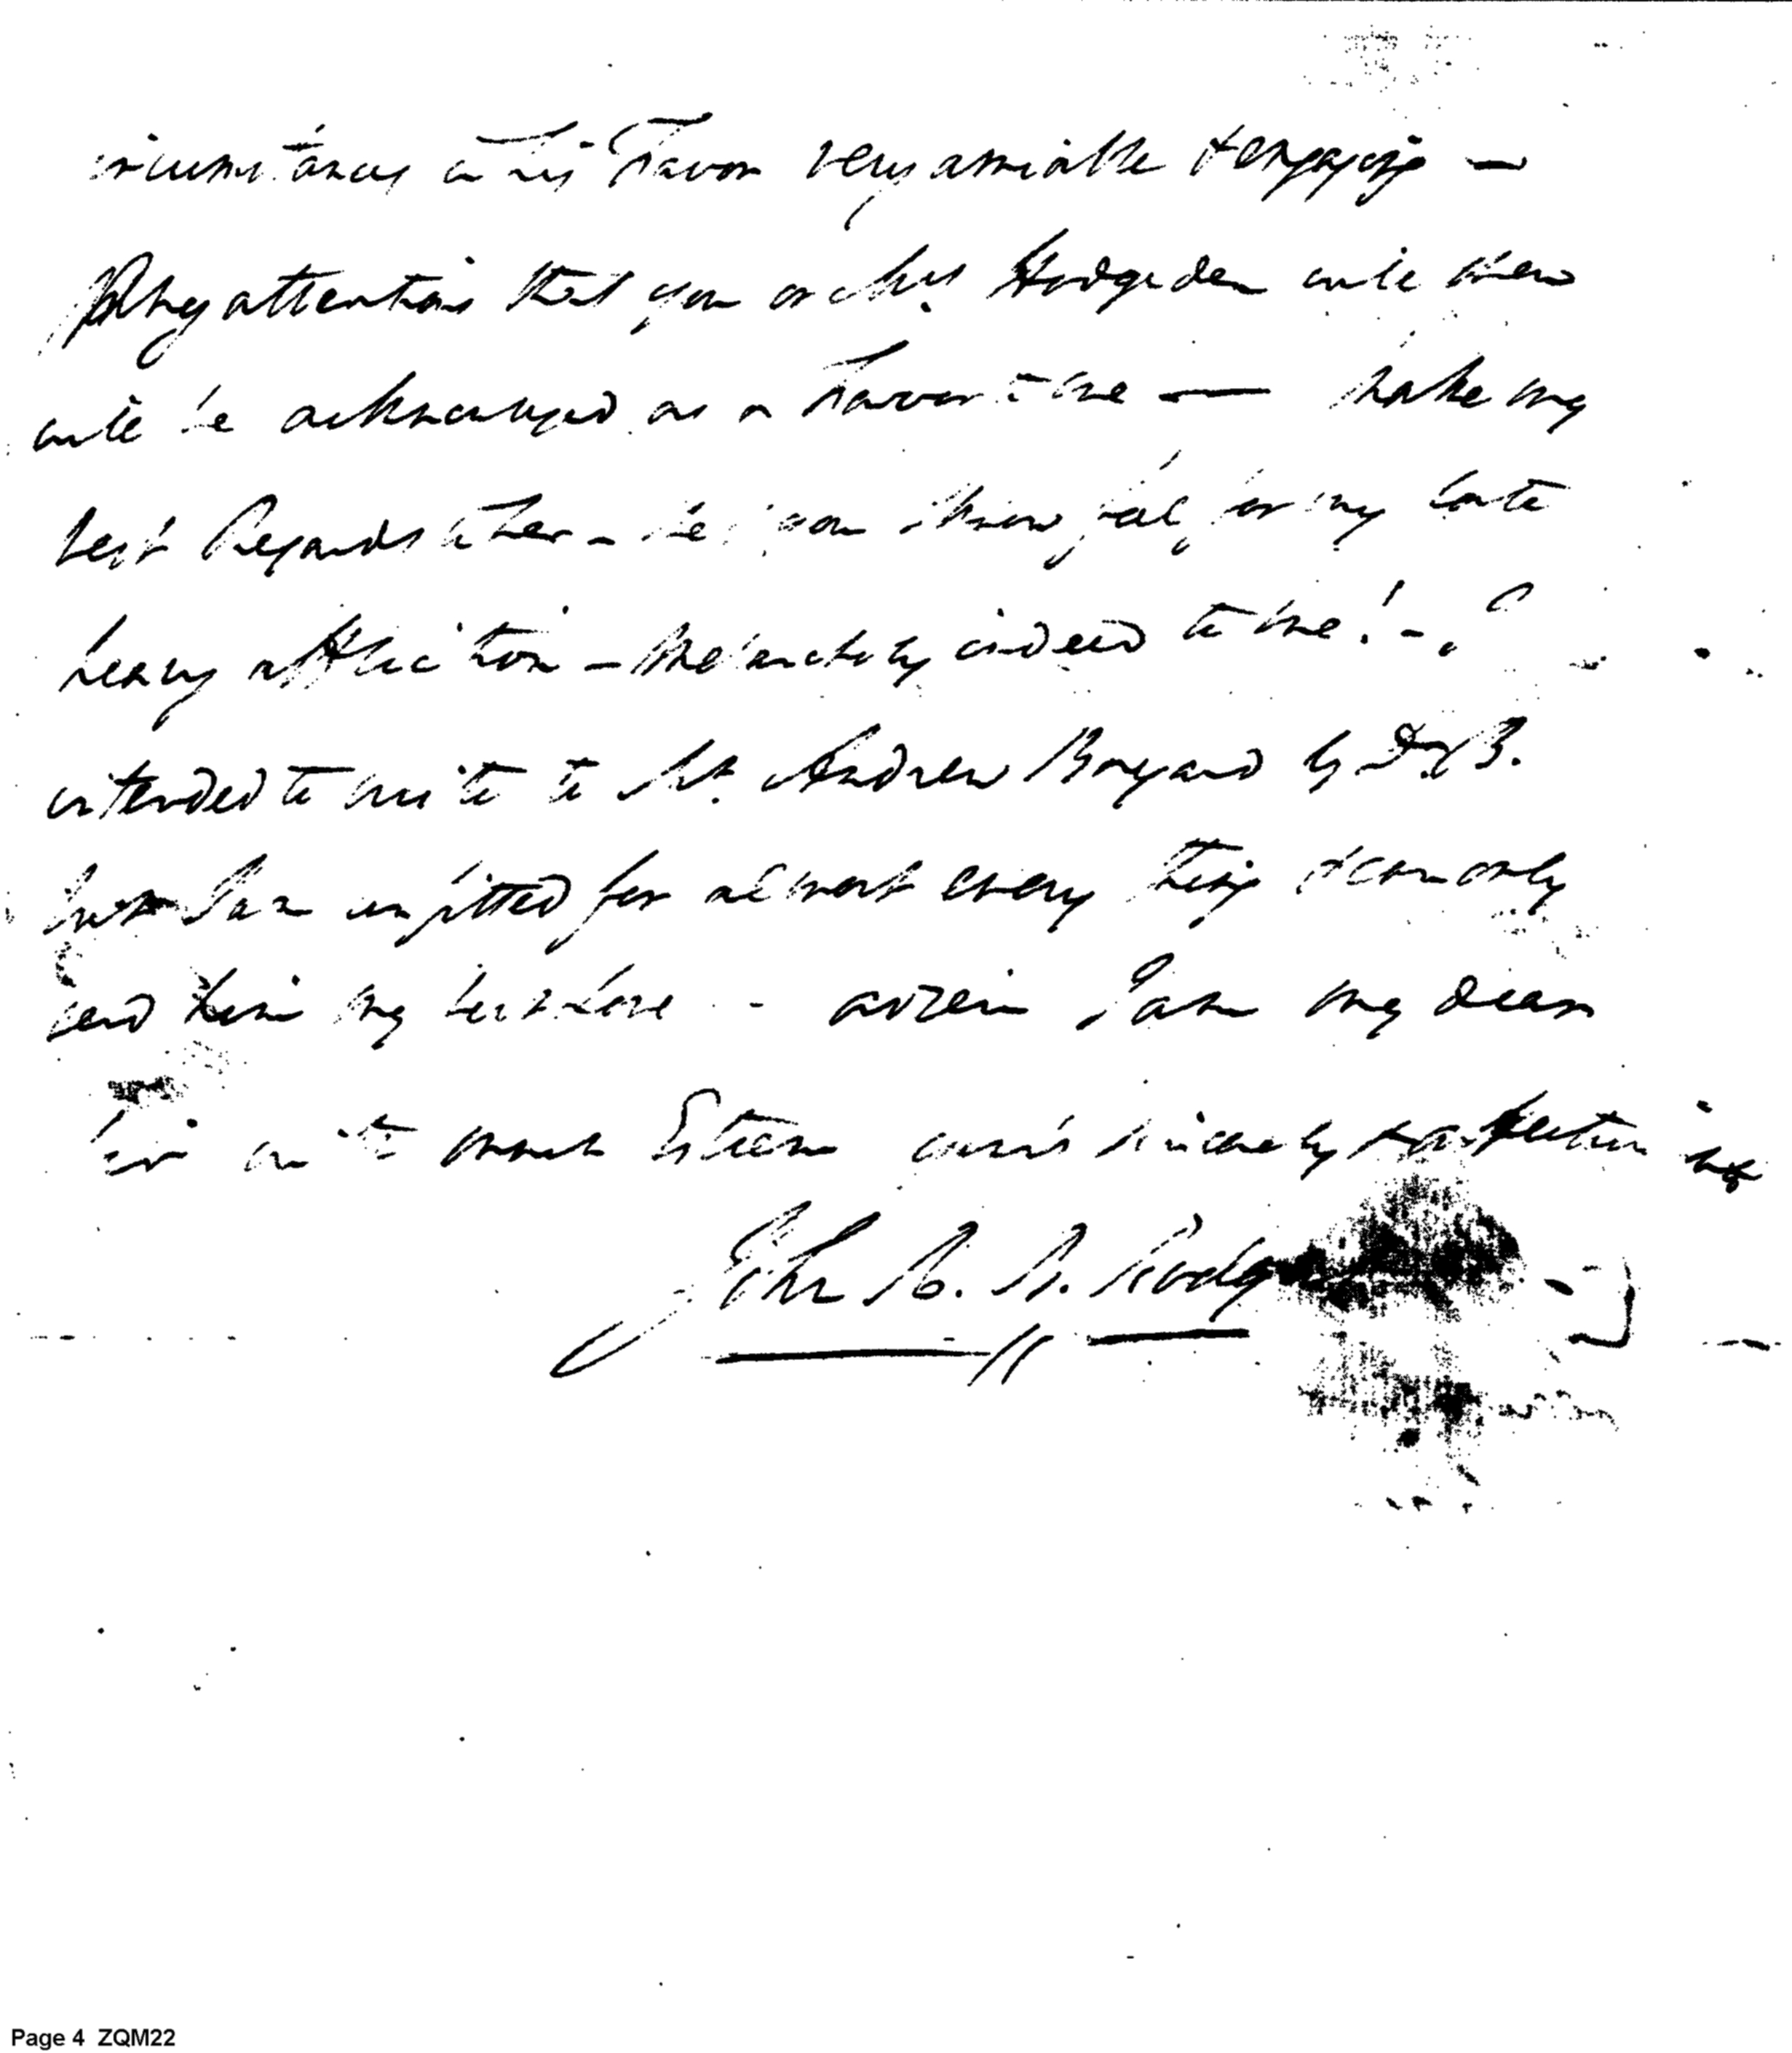 circumstances in his favor very amiable & engaging —
Any attentions that you or Mrs. Hodgsden will
will be acknowledged as a favor to me — make my
best Regards to her — she you know, feels for my late
heavy affliction — Melancholy indeed to me! — I
intended to write to Mr. Andrew Bayard by Dr. B.
but I am unfitted for almost every thing & can only
send him my best Love - I am my dear
Sir with much Esteem yours sincerely & affectionately
John R. B. Rodgers
Page 4 ZQM22